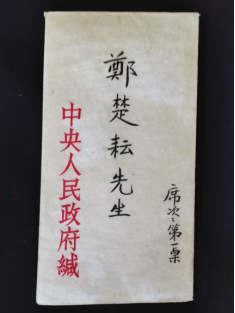 席次：第一桌
鄭楚耘先生
中央人民政府緘